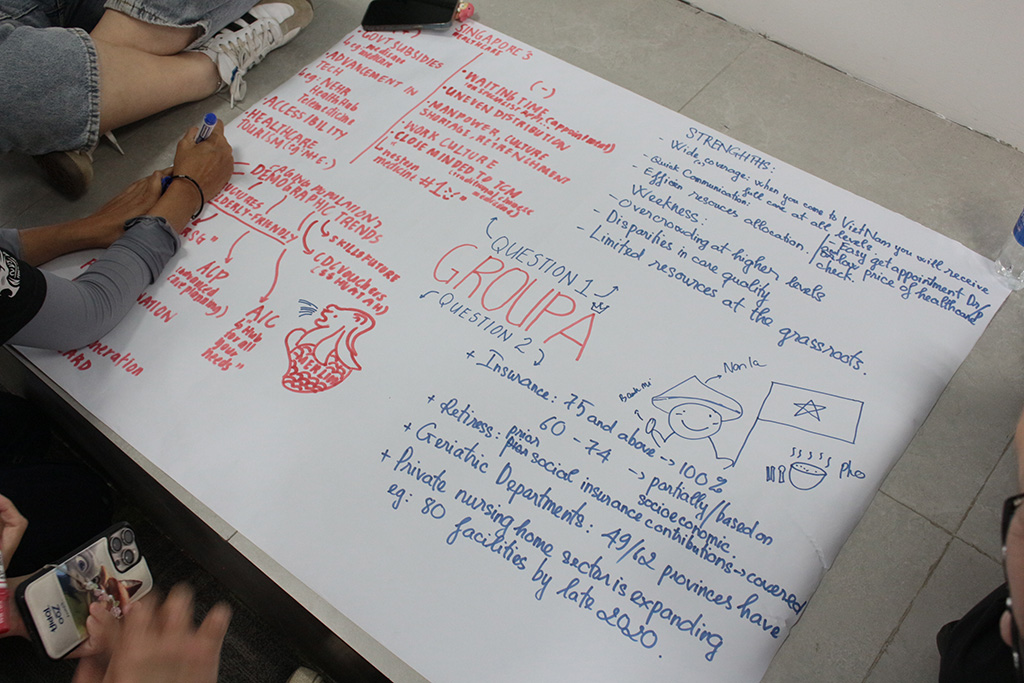 GOVT SUBSIDIES
ADVANCEMENT IN
TECH
eg: NEHR
HealthHub
Telemedicine
ACCESSIBILITY
HEALTHCARE
TOURISM
SINGAPORE
HEALTHCARE
(-)
• WAITING TIME
• UNEVEN DISTRIBUTION
• MANPOWER CULTURE
SHORTAGE - RETRENCHMENT
• WORK CULTURE
• CLOSE MINDED TO TCM
"western
medicine #1"
(traditional chinese
medicine)
(AGING POPULATION)
DEMOGRAPHIC TRENDS
ELDERLY-FRIENDLY
SKILLSFUTURE
CDC Vouchers
ACP
(advanced
care planning)
AIC
"a Hub
for all
your
needs"
↑ QUESTION 1 ↑
GROUP A
QUESTION 2
STRENGHTHS:
- Wide coverage: when you come to VietNam you will receive
full care at all levels
- Quick Communication:
- Efficien resouces allocation
- Easy get appointment Dr/P
- Low price of healthcare
check.
Weakness:
- Overcrowding at higher levels
- Disparities in care quality
- Limited resources at the grassroots.
Non la
Banh mi
Pho
+ Insurance: 75 and above → 100%
60 - 74 → partially/based on
socioeconomic.
+ Retiress: prior social insurance contributions → covered
+ Geriatric Departments: 49/62 provinces have
+ Private nursing home sector is expanding
eg: 80 facilities by late 2020.